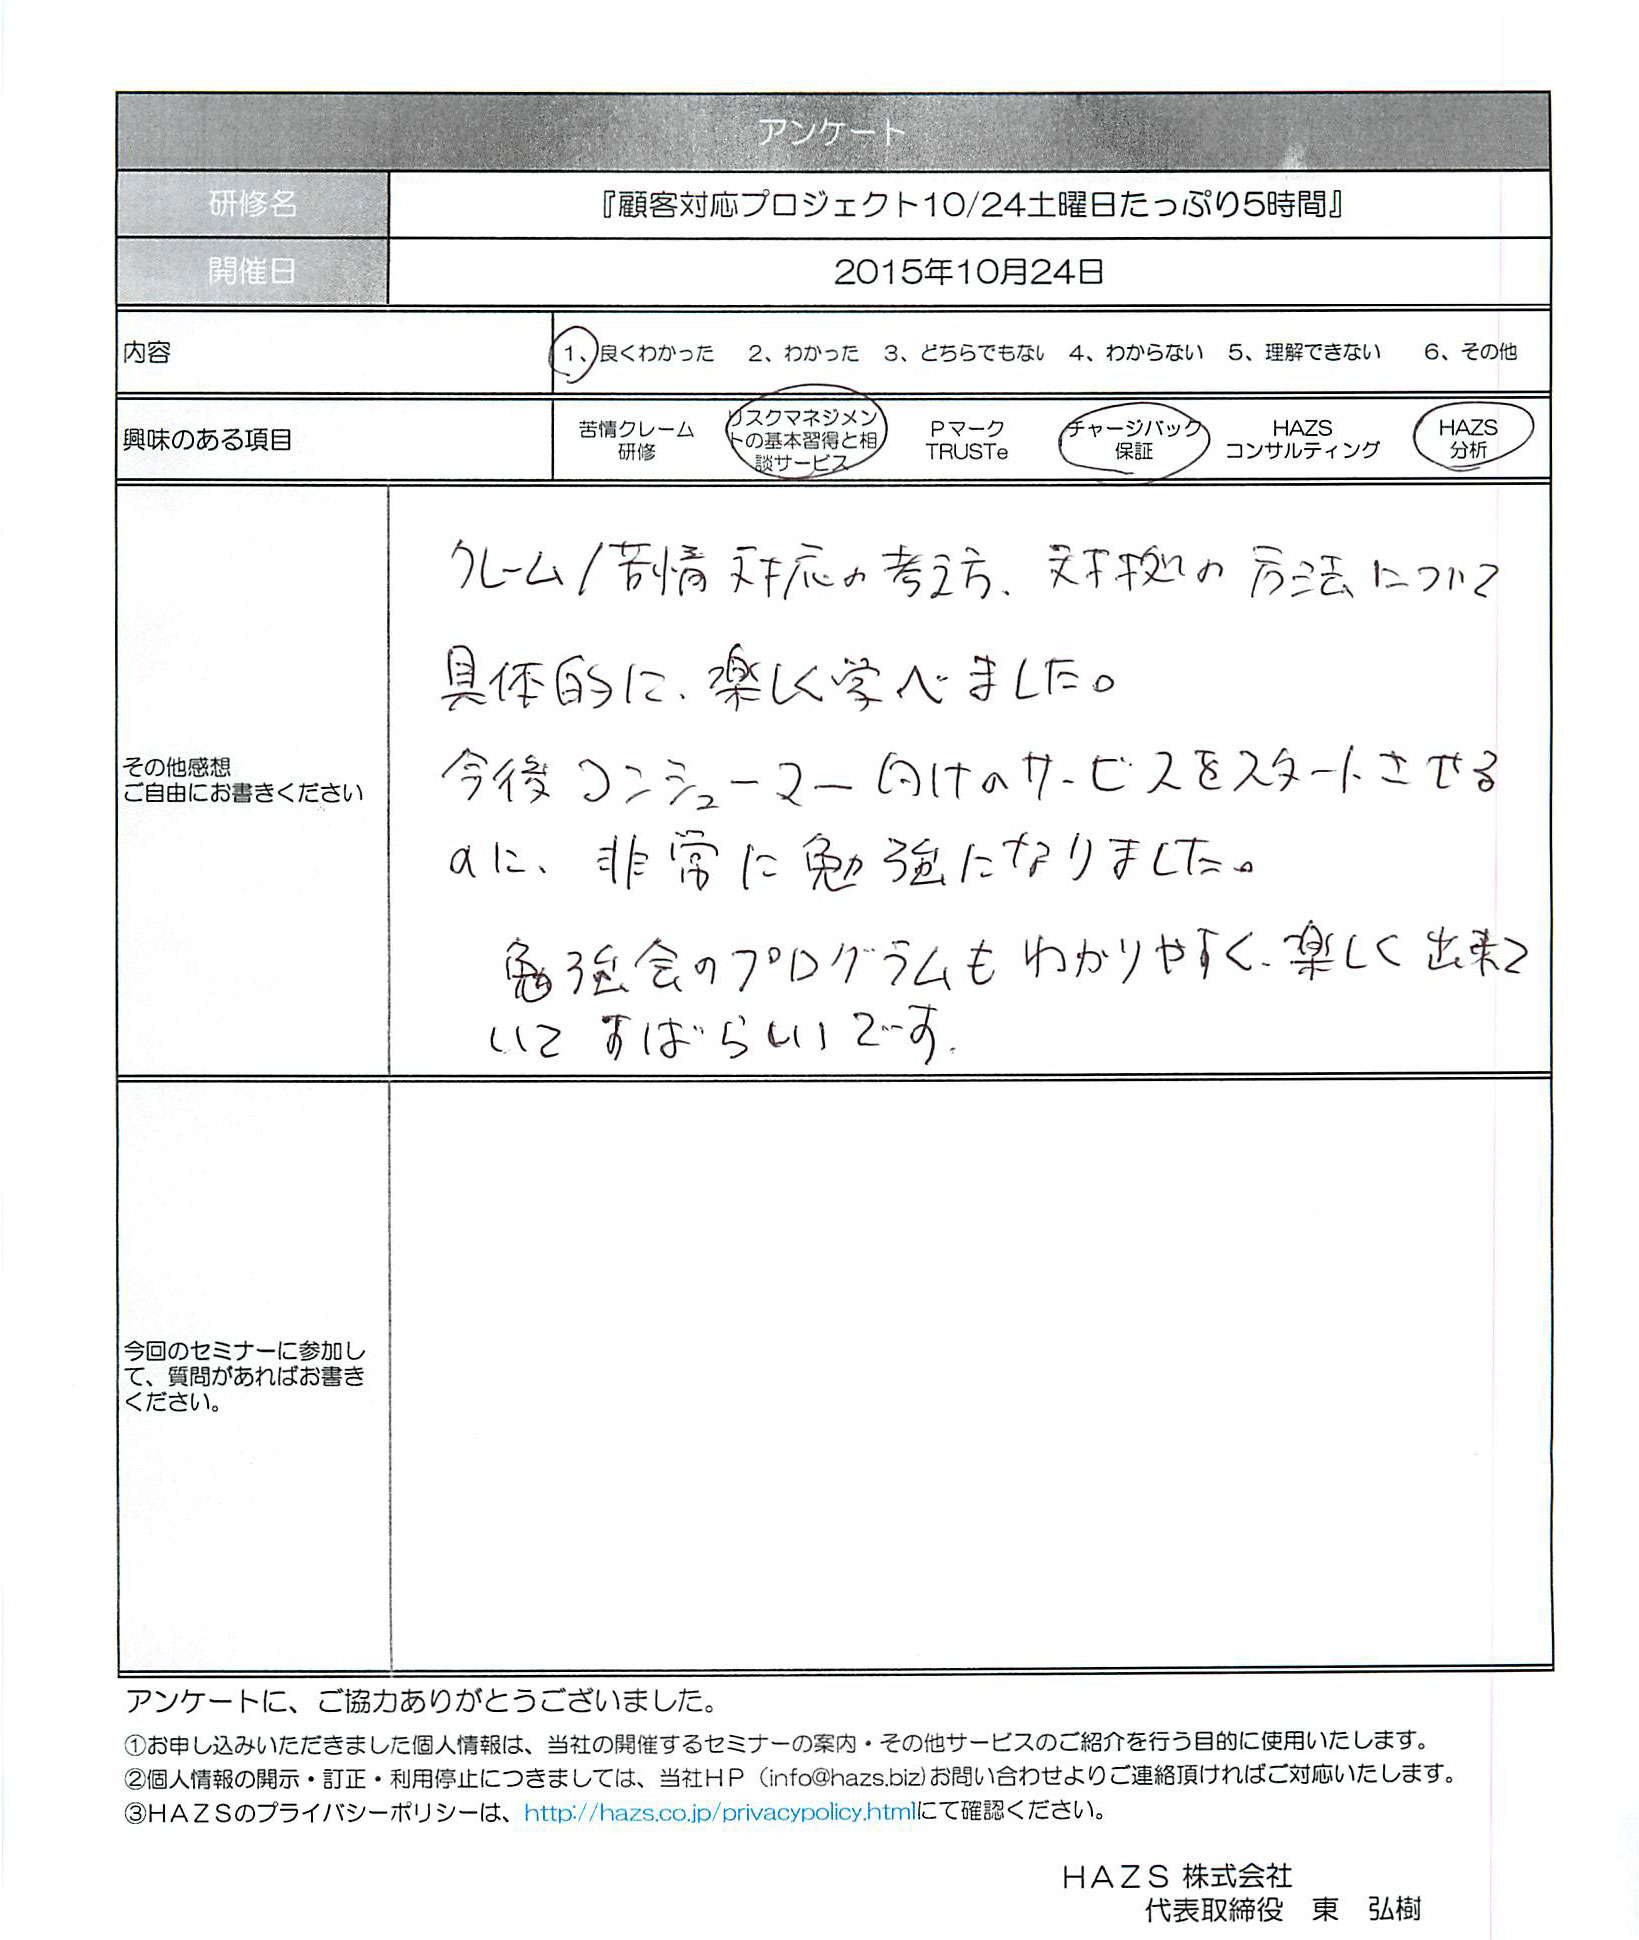 アンケート
研修名
『顧客対応プロジェクト10/24土曜日たっぷり5時間』
開催日
2015年10月24日
内容
1、良くわかった 2、わかった 3、どちらでもない 4、わからない 5、理解できない 6、その他
興味のある項目
苦情クレーム
研修
リスクマネジメン
トの基本習得と相
談サービス
Pマーク
TRUSTe
チャージバック
保証
HAZS
コンサルティング
HAZS
分析
その他感想
ご自由にお書きください
クレーム/苦情対応の考え方、対処の方法について
具体的に、楽しく学べました。
今後コンシューマー向けのサービスをスタートさせる
のに、非常に勉強になりました。
勉強会のプログラムもわかりやすく、楽しく出来て
いてすばらしいです.
今回のセミナーに参加し
て、質問があればお書き
ください。
アンケートに、ご協力ありがとうございました。
①お申し込みいただきました個人情報は、当社の開催するセミナーの案内・その他サービスのご紹介を行う目的に使用いたします。
②個人情報の開示・訂正・利用停止につきましては、当社HP（info@hazs.biz)お問い合わせよりご連絡頂ければご対応いたします。
③HAZSのプライバシーポリシーは、http://hazs.co.jp/privacypolicy.htmlにて確認ください。
HAZS 株式会社
代表取締役 東 弘樹